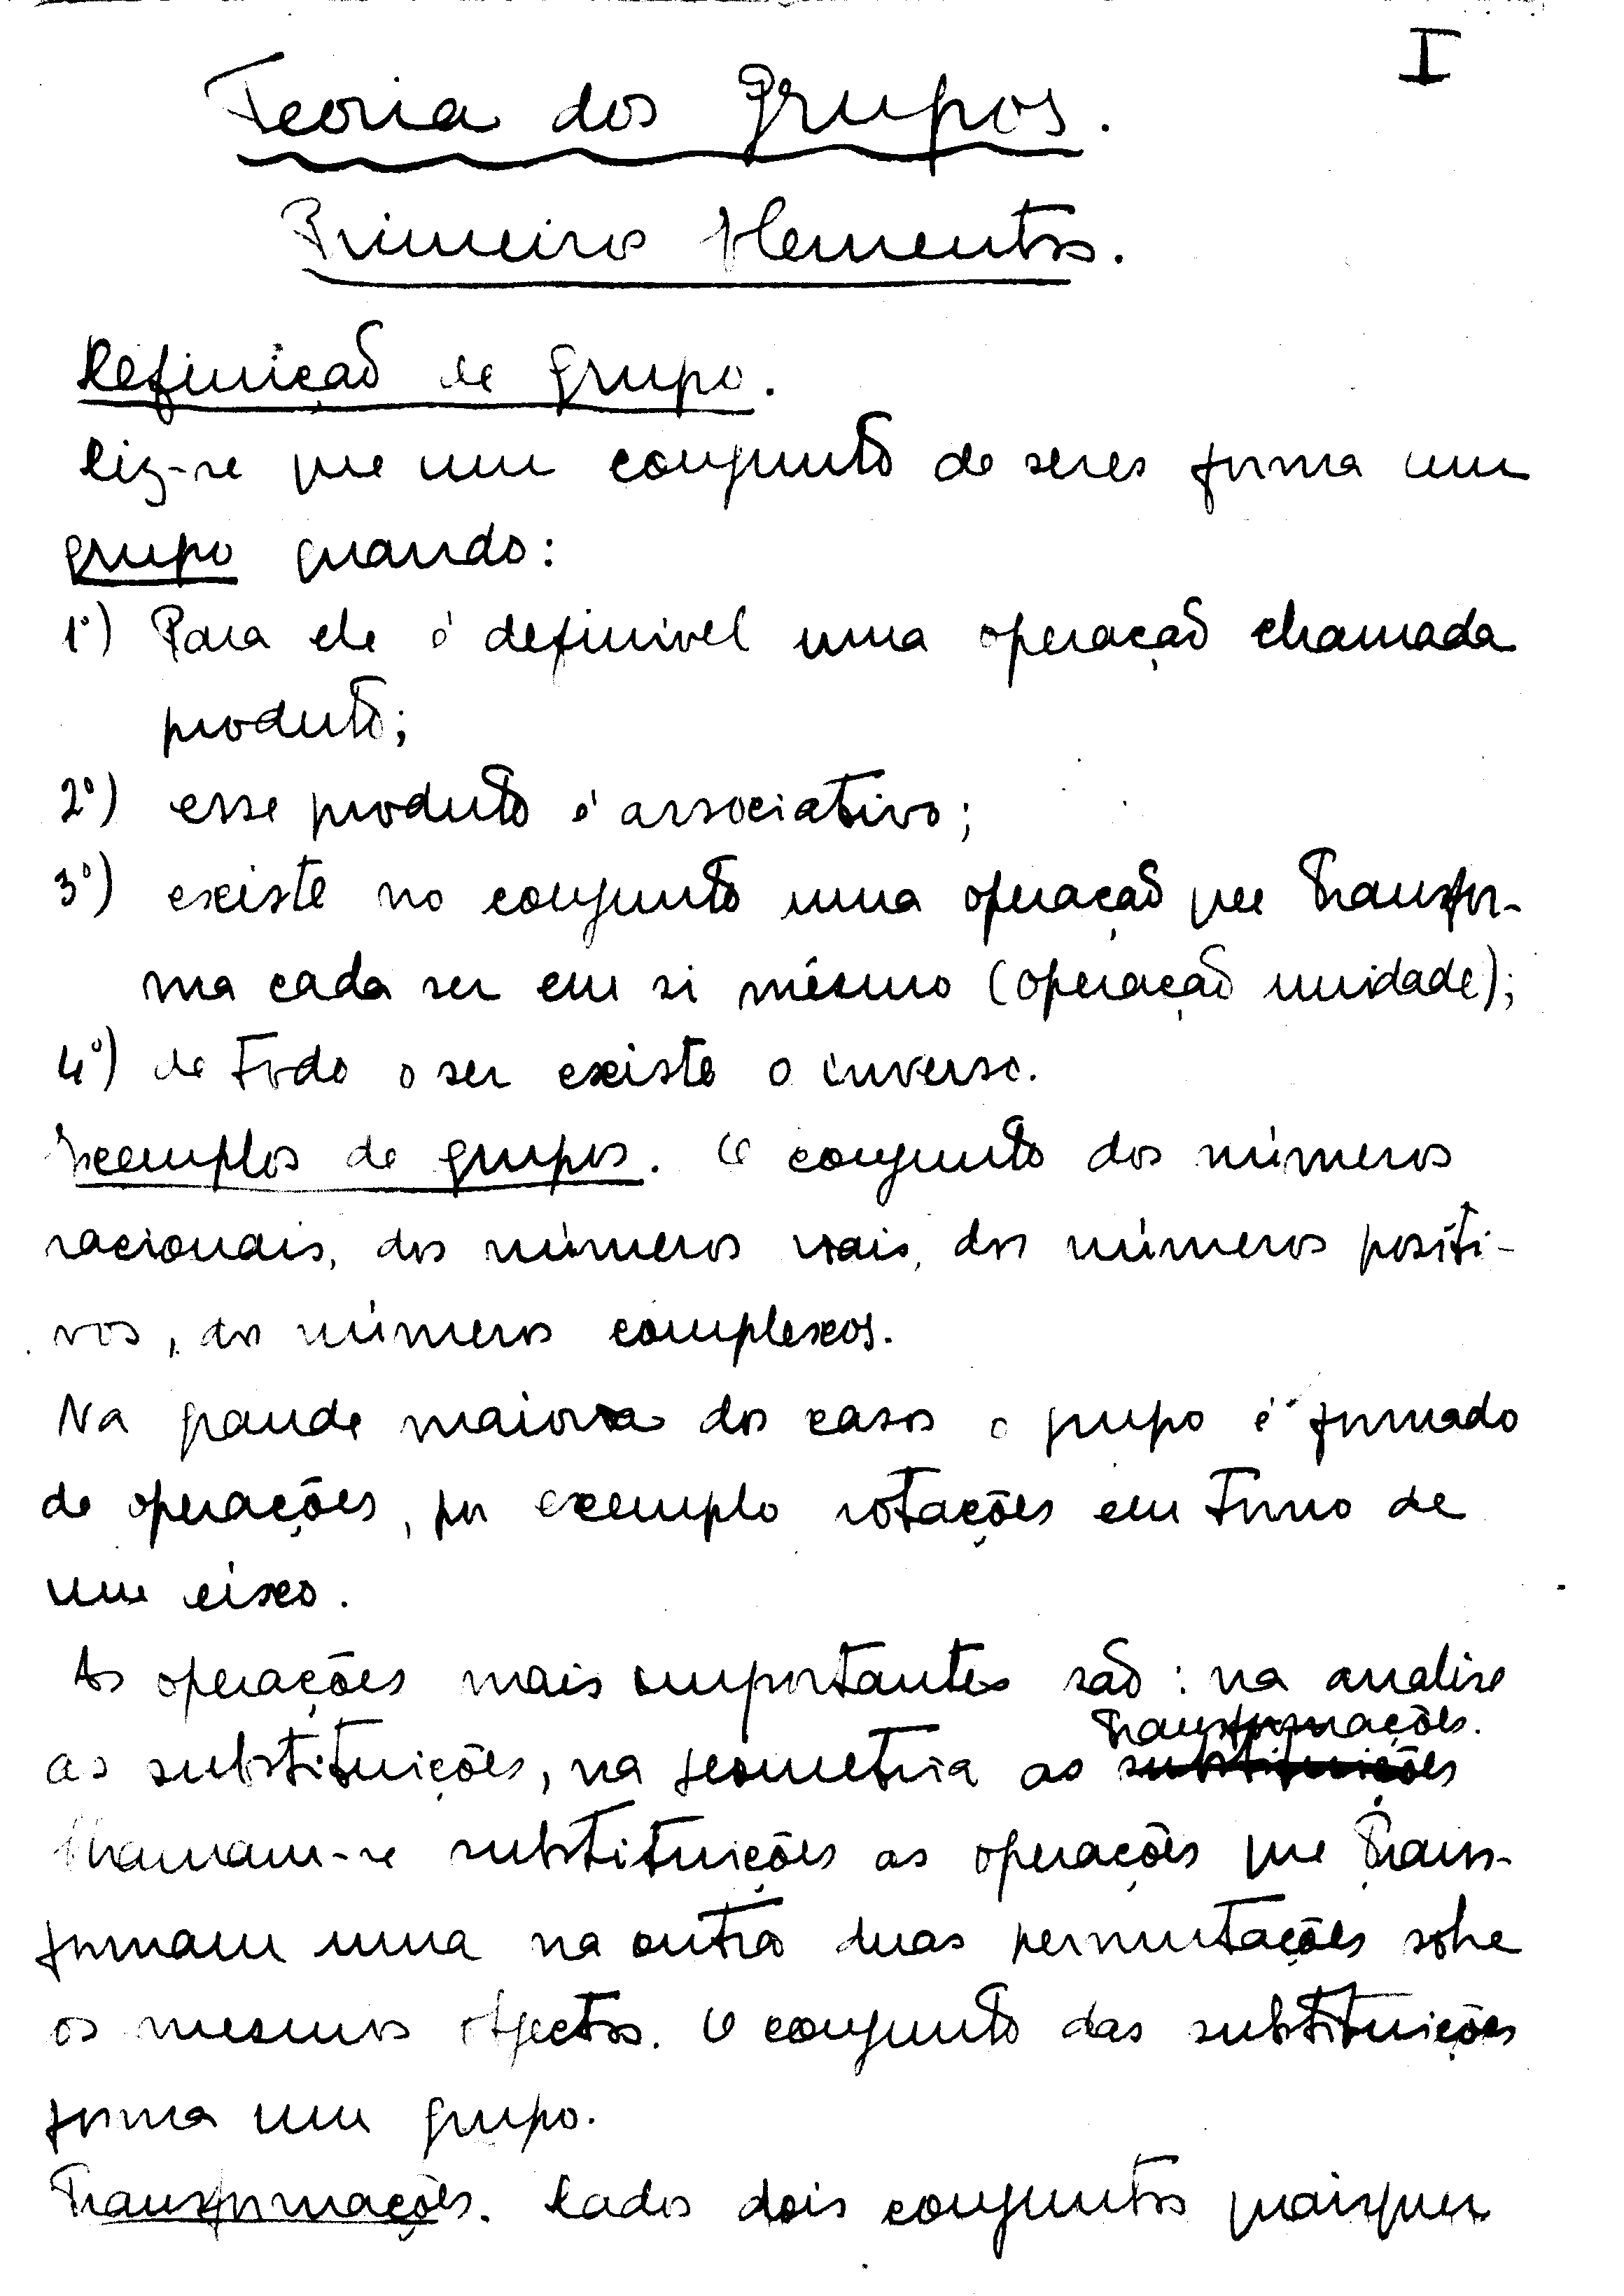 I
Teoria dos grupos.
Primeiros elementos.
Definição de grupo.
Diz-se que um conjunto de seres forma um
grupo quando:
1º) Para ele é definivel uma operação chamada
produto;
2º) esse produto é associativo;
3º) existe no conjunto uma operação que transfor-
ma cada ser em si mesmo (operação unidade);
4º) de todo o ser existe o inverso.
Exemplos de grupos. O conjunto dos números
racionais, dos números reais, dos números positi-
vos, dos números complexos.
Na grande maioria dos casos o grupo é formado
de operações, por exemplo rotações em torno de
um eixo.
As operações mais importantes são: na analise
transformações.
as substituições, na geometria as substituições
Chamam-se substituições as operações que trans-
formam uma na outra duas permutações sobre
os mesmos objectos. O conjunto das substituições
forma um grupo.
Transformações. Dados dois conjuntos quaisquer